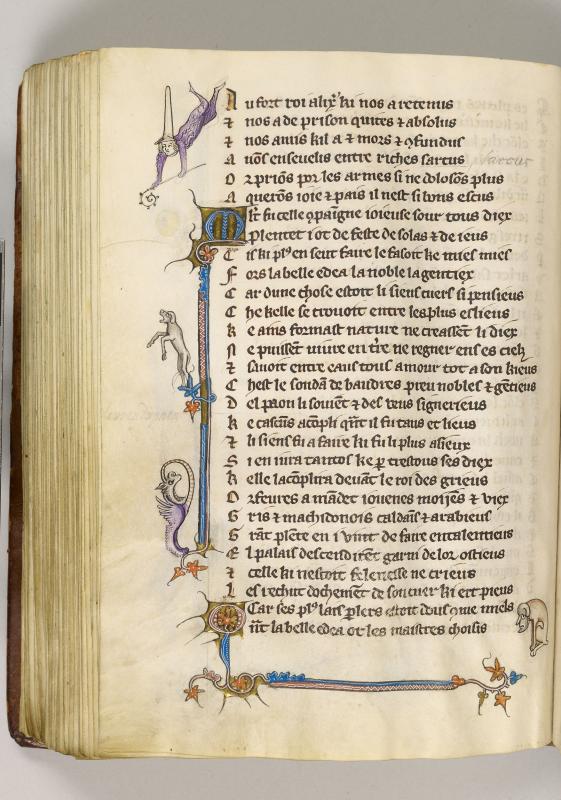 Au fort roi alix' ki nos a retenus
⁊ nos a de prison quites ⁊ absolus
⁊ nos amis kil a ⁊ mors ⁊ ꝯfundus
Auōs enseuelis entre riches sartus
Or priōs por les armes si ne dolosōs plus
A querōs ioie ⁊ pais il nest si bons escus
Mlt fu celle ꝯpaigne ioieuse sour tous diex
plentet i ot de feste de solas ⁊ de ieus
Cis ki pl9 en seut faire le fasoit ke mies mies
Fors la belle edea la noble la gentiex
Car dune chose estoit li siens cuers si pensieus
Che kelle se trouoit entre les plus eslieus
Ke ains formast nature ne creassent li diex
Ne puissent uiure en tr̄e ne regner en ses cielx
⁊ sauoit entre eaus tous amour tot a son kieus
Chest le soudā de baudres preu nobles ⁊ gētieus
Del paon li souient ⁊ des veus signerieus
Ke cascūs acōpli qn̄t il fu taus et lieus
⁊ li siens fu a faire ki fu li plus asieux
Si en iura tantos ke ꝑ trestous ses diex
Kelle lacōplira deuāt le roi des grieus
Orfeures a mādet iouenes moijēs ⁊ viex
Gris ⁊ machidonois caldaīs ⁊ arabieus
Grāt plēte en i vint de faire entalentieus
El palais descendirēt garni de lor ostieus
⁊ celle ki nestoit felenesse ne crieus
Les rechut dochemēt de son cuer ki ert pieus
Car ses pl9 lais ꝑlers estoit dous ꝯme miels
Qn̄t la belle edea ot les maistres choisis